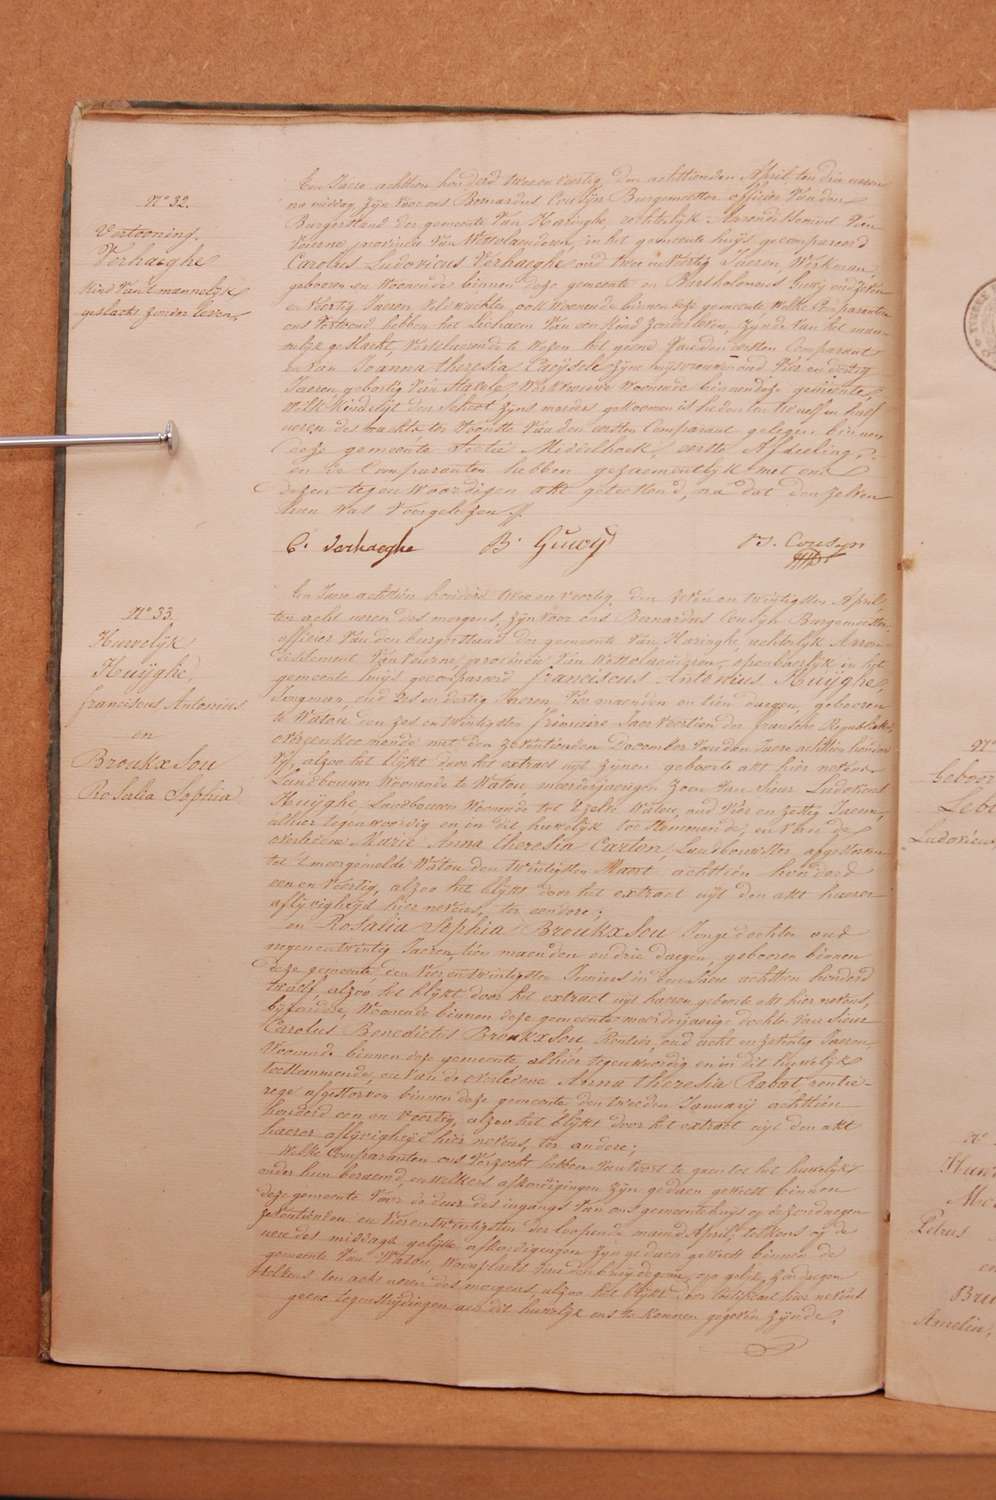 N.º 32.
Vertooning.
Verhaeghe
kind van t mannelijk
geslacht zonder leven.
Een Jaere achttien honderd twee en veertig, den achttienden April ten drie ueren
na middag, zijn voor ons Bernardus Cousijn Burgemeester officier van den
Burgerstand der gemeente van Haringhe rechtelijk Arrondissement van
Veurne provincie van Westvlaenderen, in het gemeente huijs gecompareerd
Carolus Ludovicus Verhaeghe oud twee en veertig Jaeren, Werkman,
geboren en Woonende binnen deze gemeente en Bartholomeus Guwij oud zeven
en veertig Jaeren, Veldwachter, ook Woonende binnen deze gemeente, Welke Comparanten
ons Vertoond hebben het Lichaem van een Kind zonder leven, zijnde van het man-
nelijk geslacht, Verklaerende te Wezen het geene van den eersten Comparant
en van Joanna theresia Cuijssele zijne huijsvrouwe oud vier en dertig
Jaeren, gebortig van Stavele, Werkvrouwe Woonende binnen deze gemeente,
Welk Kind uijt den schoot zijns moeders gekoomen is heden ten twee en half
ueren des nachts ter Woonste van den eersten Comparant gelegen binnen
deze gemeente Sectie Middelhoek, eerste Afdeeling,
en de Comparanten hebben gezaementlijk met ons
dezen tegenwoordigen akt geteekend, na dat den zelven
hun was voorgelezen.
C. Verhaeghe B. Guwy Bs. Cousyn
N.º 33.
Huwelijk
Huÿghe,
franciscus Antonius
en
BroukxSou
Rosalia Sophia
Een Jaere achttien honderd twee en veertig, den zeven en twintigsten April,
ten acht ueren des morgens, zijn voor ons Bernardus Cousijn Burgemeester
officier van den burgerstaed der gemeente van Haringhe, rechtelijk Arron-
dissement van Veurne, provincie van Westvlaenderen, openbaerlijk in het
gemeente huijs gecompareerd franciscus Antonius Huÿghe,
Jongman, oud zes en dertig Jaeren, vier maenden en tien daegen, geboren
te Watou den zes en twintigsten frimaire Jaer veertien der fransche Republiek,
overeenkomende met den zeventienden December van den Jaere achttien honderd
vijf, alzoo het blijkt door het extract uijt zijnen geboorte akt hier nevens
Landbouwer Woonende te Watou, meerderjaerigen zoon van Sieur Ludovicus
Huÿghe Landbouwer Woonende tot t zelve Watou, oud vier en zestig Jaeren,
alhier tegenwoordig en in dit huwelijk toestemmende, en van de
overledene Marie Anna theresia Carton, Landbouwster, afgestorven
tot t meergemelde Watou den twintigsten Maert achttien honderd
een en veertig, alzoo het blijkt door het extract uijt den akt haerer
aflijvigheijd hier nevens, ter eendere;
en Rosalia Sophia BroukxSou Jonge dochter oud
negen en twintig Jaeren, tien maenden en drie daegen, geboren binnen
deze gemeente den vier en twintigsten Junius in den Jaere achttien honderd
twaelf, alzoo het blijkt door het extract uijt haeren geboorte akt hier nevens,
bijzondere, Woonende binnen deze gemeente meerderjaerige dochter van Sieur
Carolus Benedictus BroukxSou, Rentier, oud acht en zeventig Jaeren,
Woonende binnen deze gemeente, alhier tegenwoordig en in dit Huwelijk
toestemmende, en van de overledene Anna theresia Rabat, rentie-
rege afgestorven binnen deze gemeente den tweeden Januarij achttien
honderd een en veertig, alzoo het blijkt door het extract uijt den akt
haerer aflijvigheijd hier nevens, ter andere;
Welke Comparanten ons Verzocht hebben van voort te gaen tot het huwelijk
onder hun beraemd, en welkers afkondigingen zijn gedaen geweest binnen
deze gemeente voor de deur des ingangs van ons gemeentehuijs op de zondaegen
zeventienden en vier en twintigsten der loopende maend April, telkens op de
uere des middags, gelijke afkondigingen zijn gedaen geweest binnen de
gemeente van Watou, Woonplaets van den bruijdegom, op gelijke zondaegen
telkens ten acht ueren des morgens, alzoo het blijkt door certificaet hier nevens
geene tegenstrijdingen aen dit huwelijk ons te kennen gegeven zijnde,
N.º
Geboor
Lebo
Ludovicus
N.º
Huw
Petrus
en
Bru
Amelia,